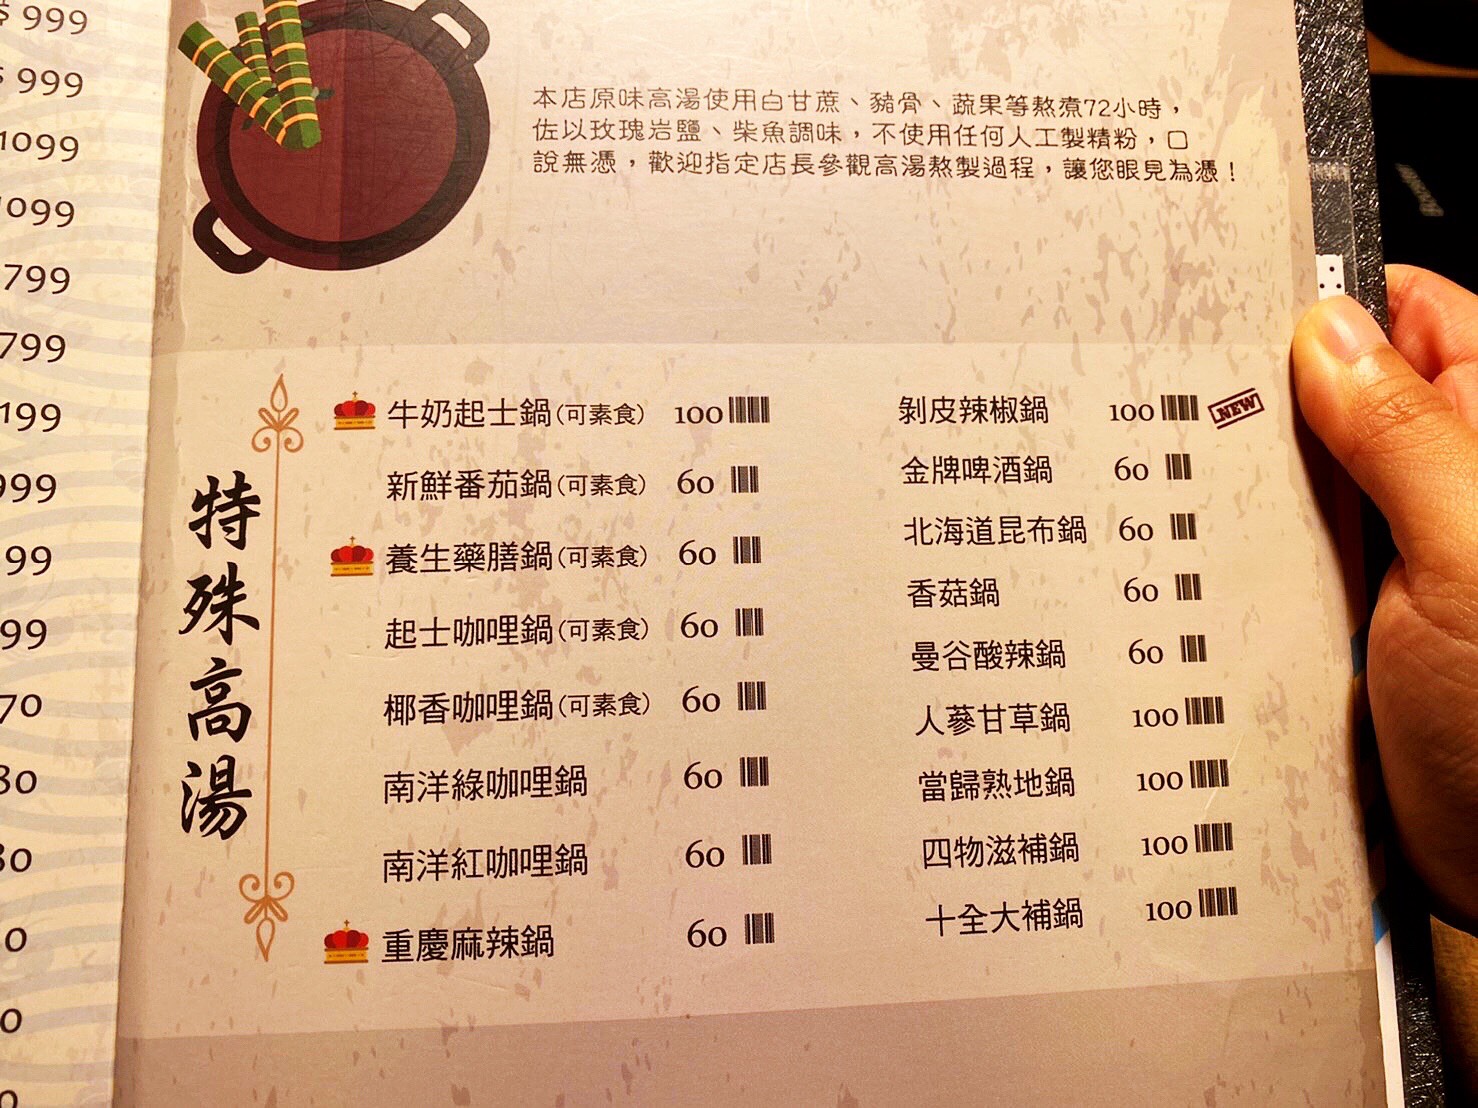 $ 999
$ 999
1099
1099
799
799
199
999
99
99
70
80
30
0
0
本店原味高湯使用白甘蔗、豬骨、蔬果等熬煮72小時，
佐以玫瑰岩鹽、柴魚調味，不使用任何人工製精粉，口
說無憑，歡迎指定店長參觀高湯熬製過程，讓您眼見為憑！
特殊高湯
牛奶起士鍋(可素食) 100
新鮮番茄鍋(可素食) 60
養生藥膳鍋(可素食) 60
起士咖哩鍋(可素食) 60
椰香咖哩鍋(可素食) 60
南洋綠咖哩鍋 60
南洋紅咖哩鍋 60
重慶麻辣鍋 60
剝皮辣椒鍋 100 NEW
金牌啤酒鍋 60
北海道昆布鍋 60
香菇鍋 60
曼谷酸辣鍋 60
人蔘甘草鍋 100
當歸熟地鍋 100
四物滋補鍋 100
十全大補鍋 100